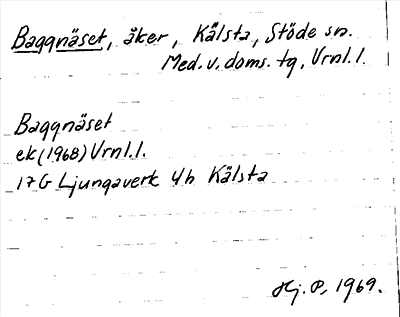 Baggnäset, åker, Kälsta, Stöde sn.
Med. v. doms. tg, Vrnl. l.
Baggnäset
ek (1968) Vrnl. l.
17G Ljungaverk 4h Kälsta
Hj. P, 1969.